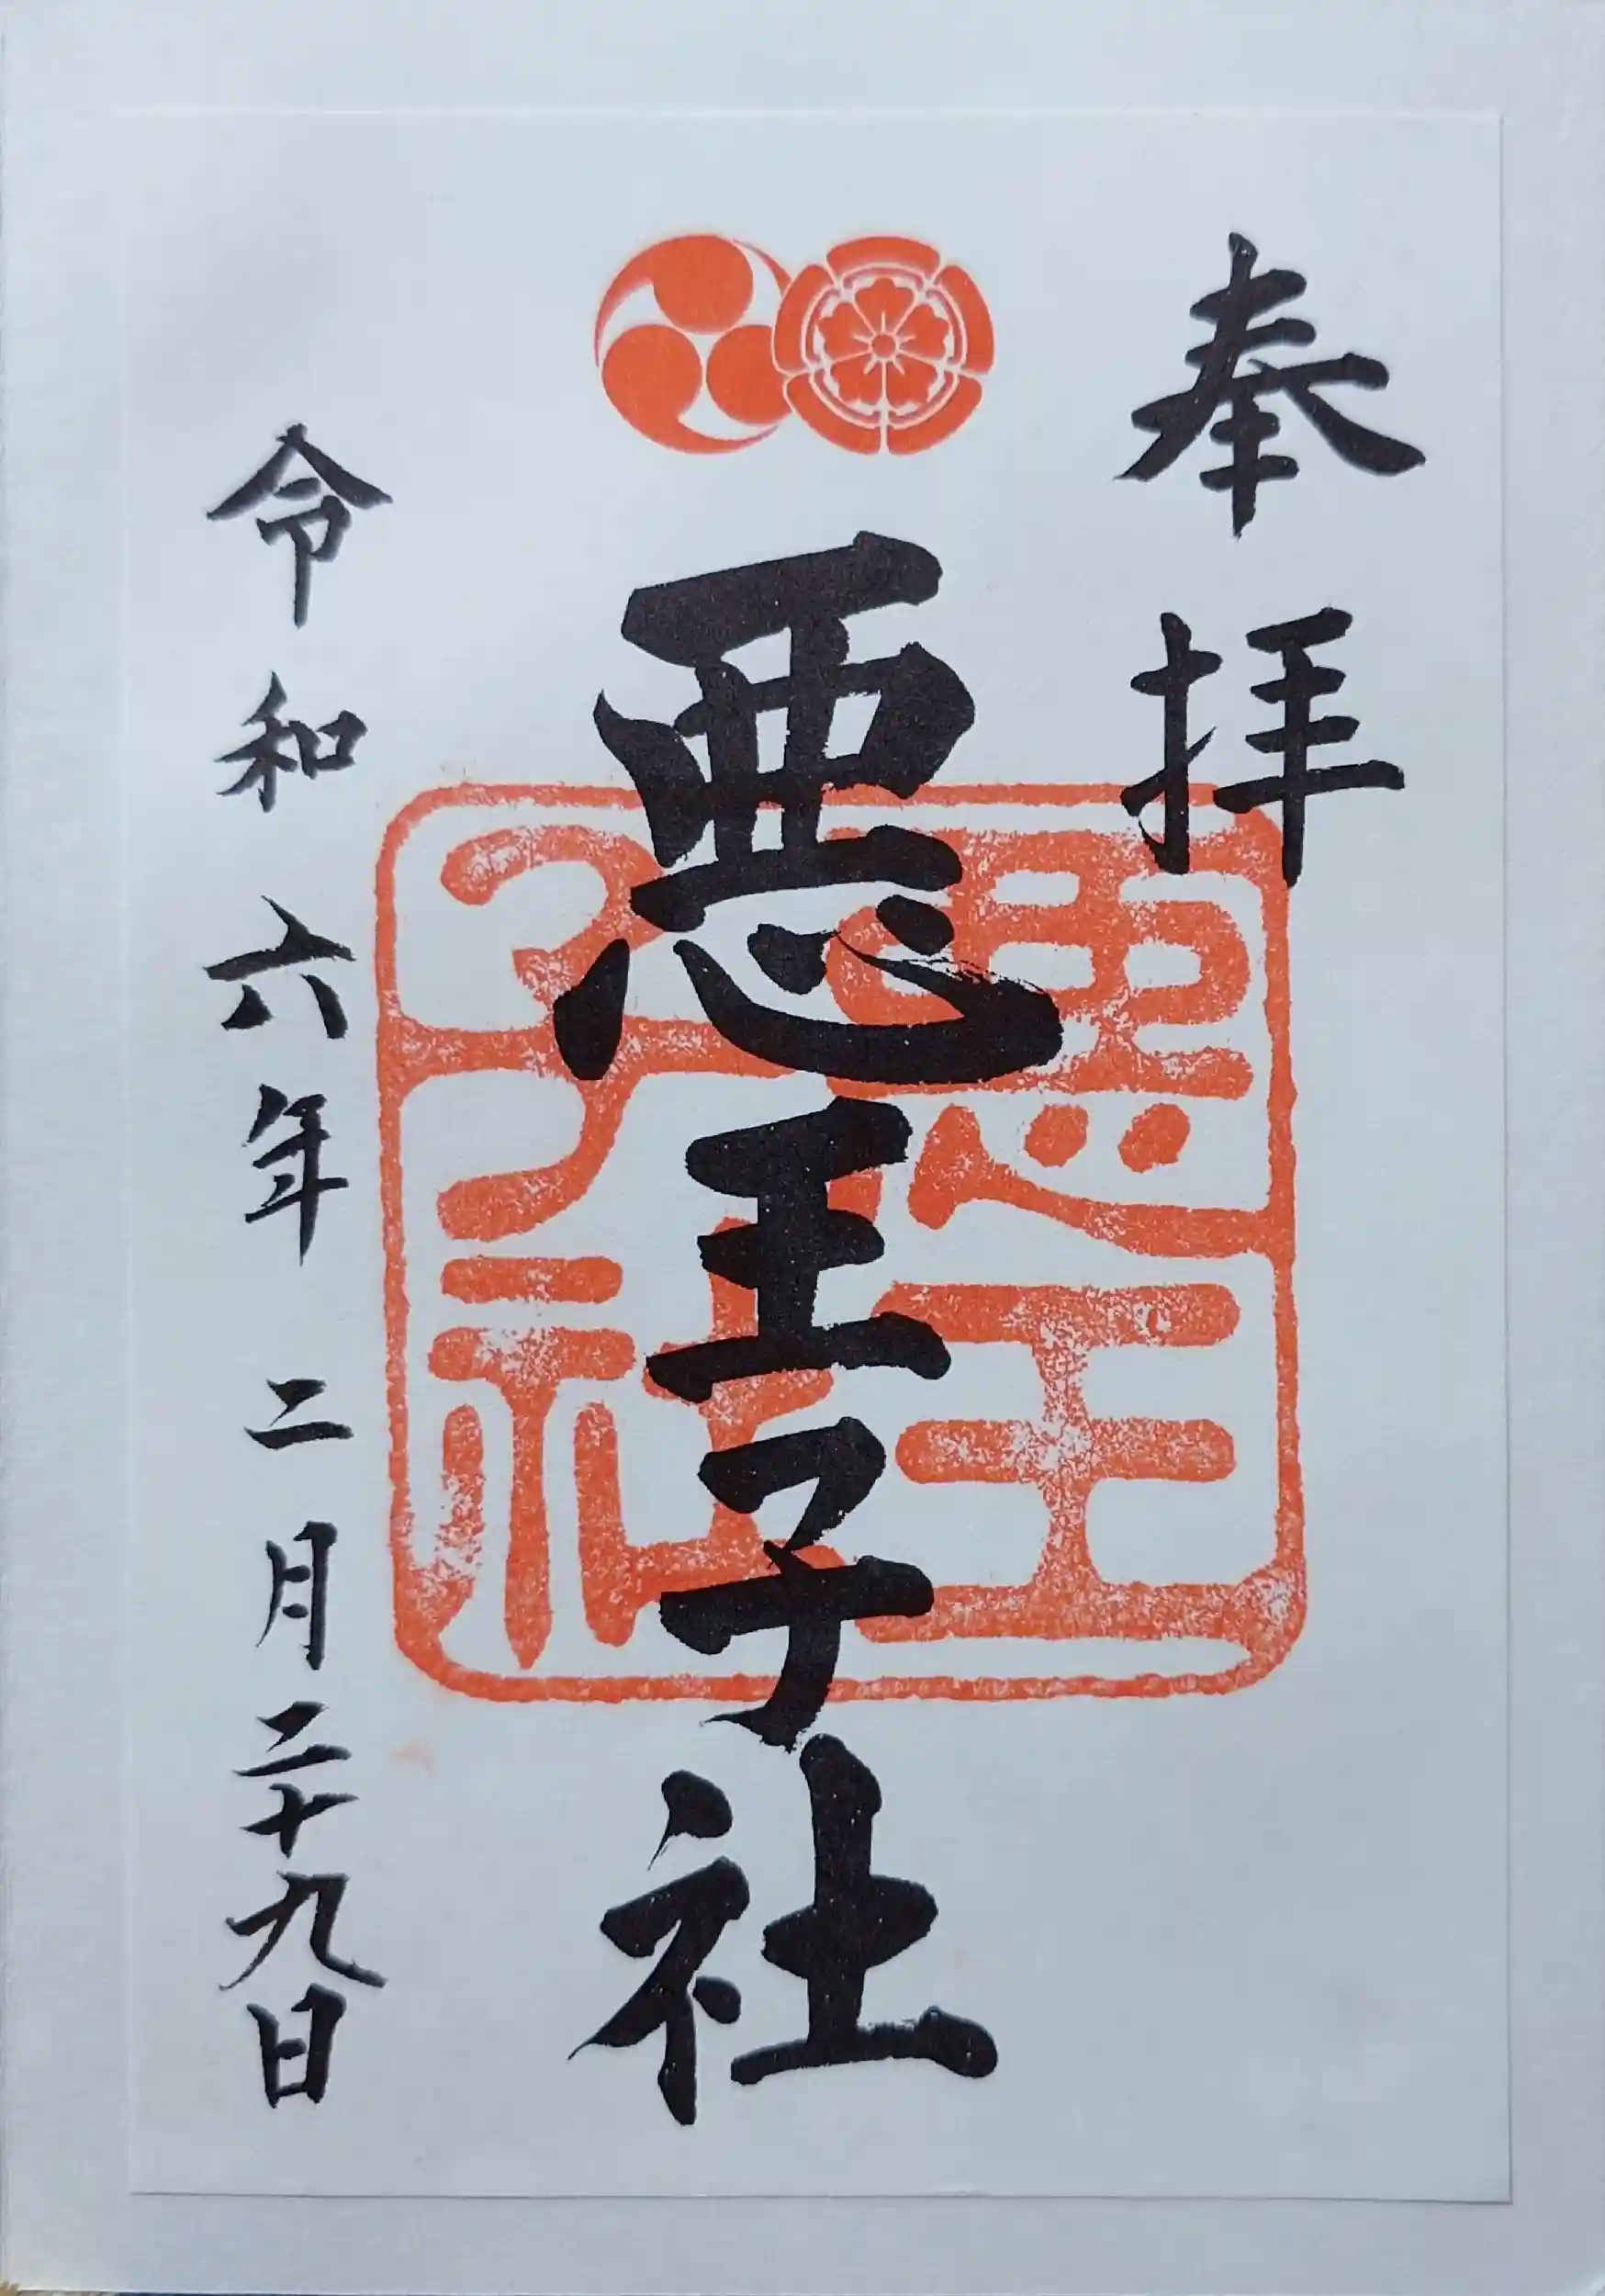 奉拝
悪王子社
悪王子社
令和六年二月二十九日